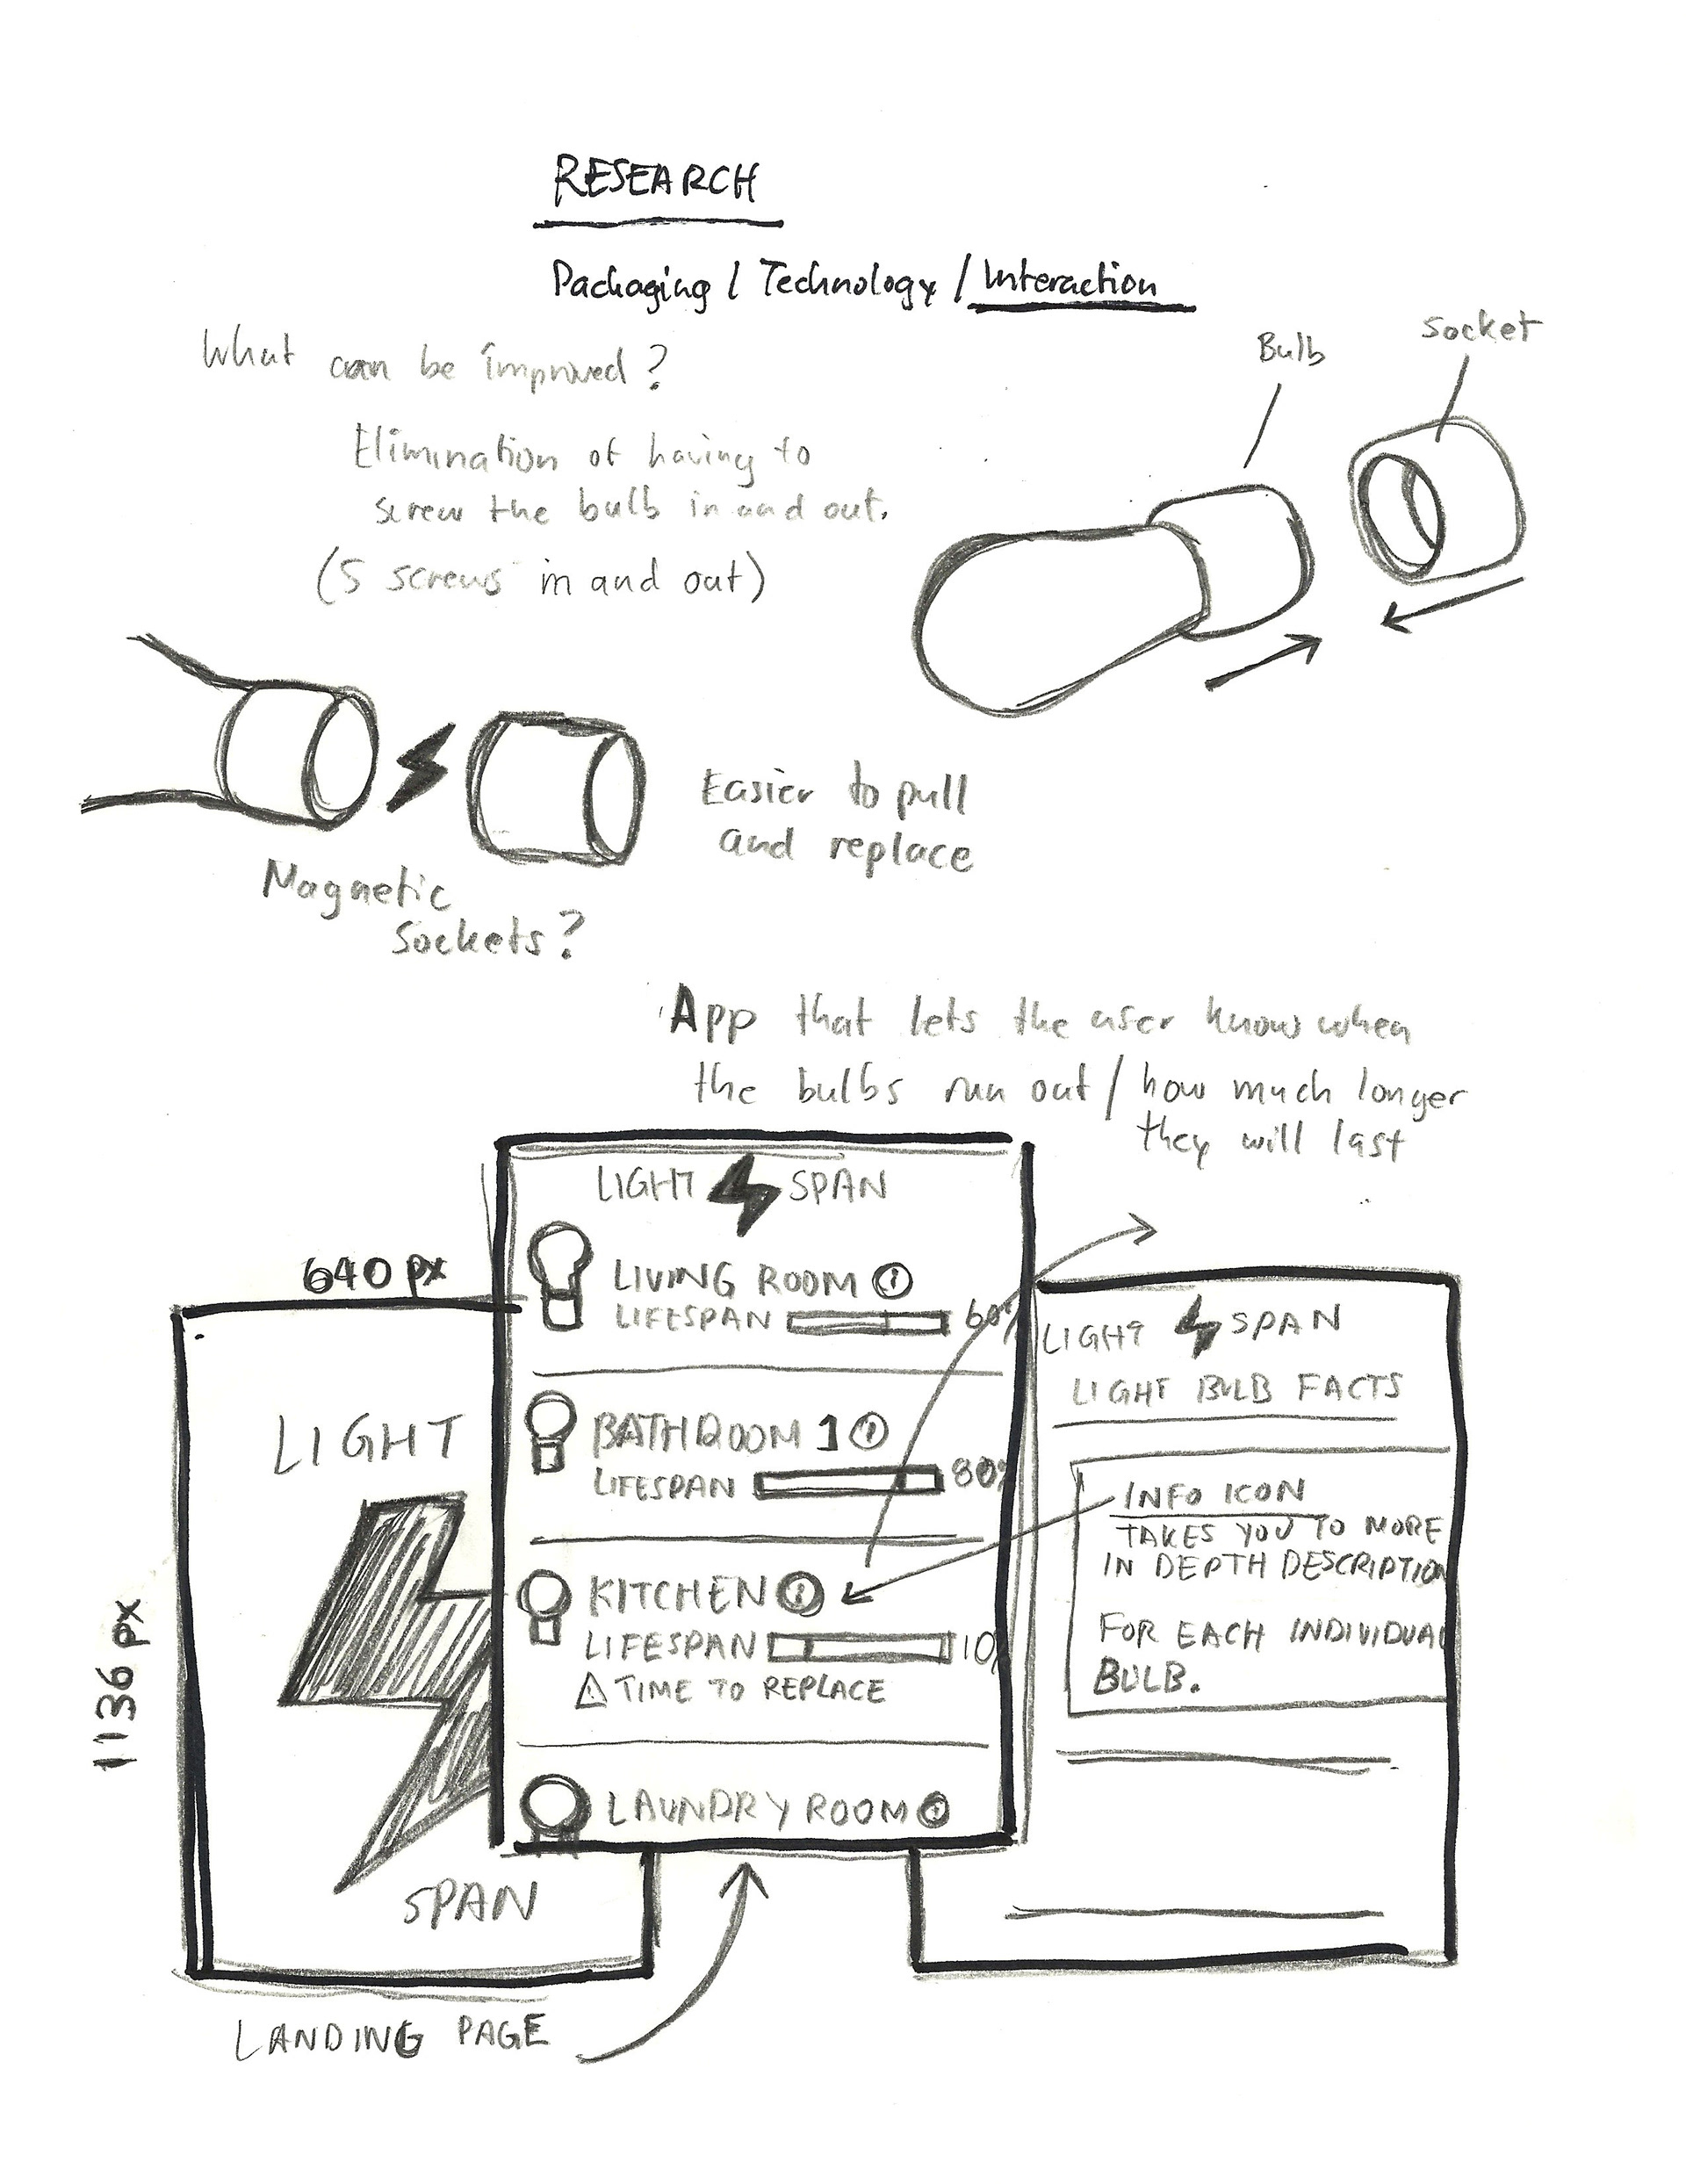 RESEARCH
Packaging / Technology / Interaction
What can be improved?
Elimination of having to
screw the bulb in and out.
(5 screws in and out)
Bulb
Socket
Magnetic
Sockets?
Easier to pull
and replace
App that lets the user know when
the bulbs run out / how much longer
they will last
640 px
1136 px
LIGHT
SPAN
LANDING PAGE
LIGHT SPAN
LIVING ROOM i
LIFESPAN 60%
BATHROOM 1 i
LIFESPAN 80%
KITCHEN i
LIFESPAN 10%
TIME TO REPLACE
LAUNDRY ROOM i
LIGHT SPAN
LIGHT BULB FACTS
INFO ICON
TAKES YOU TO MORE
IN DEPTH DESCRIPTION
FOR EACH INDIVIDUAL
BULB.